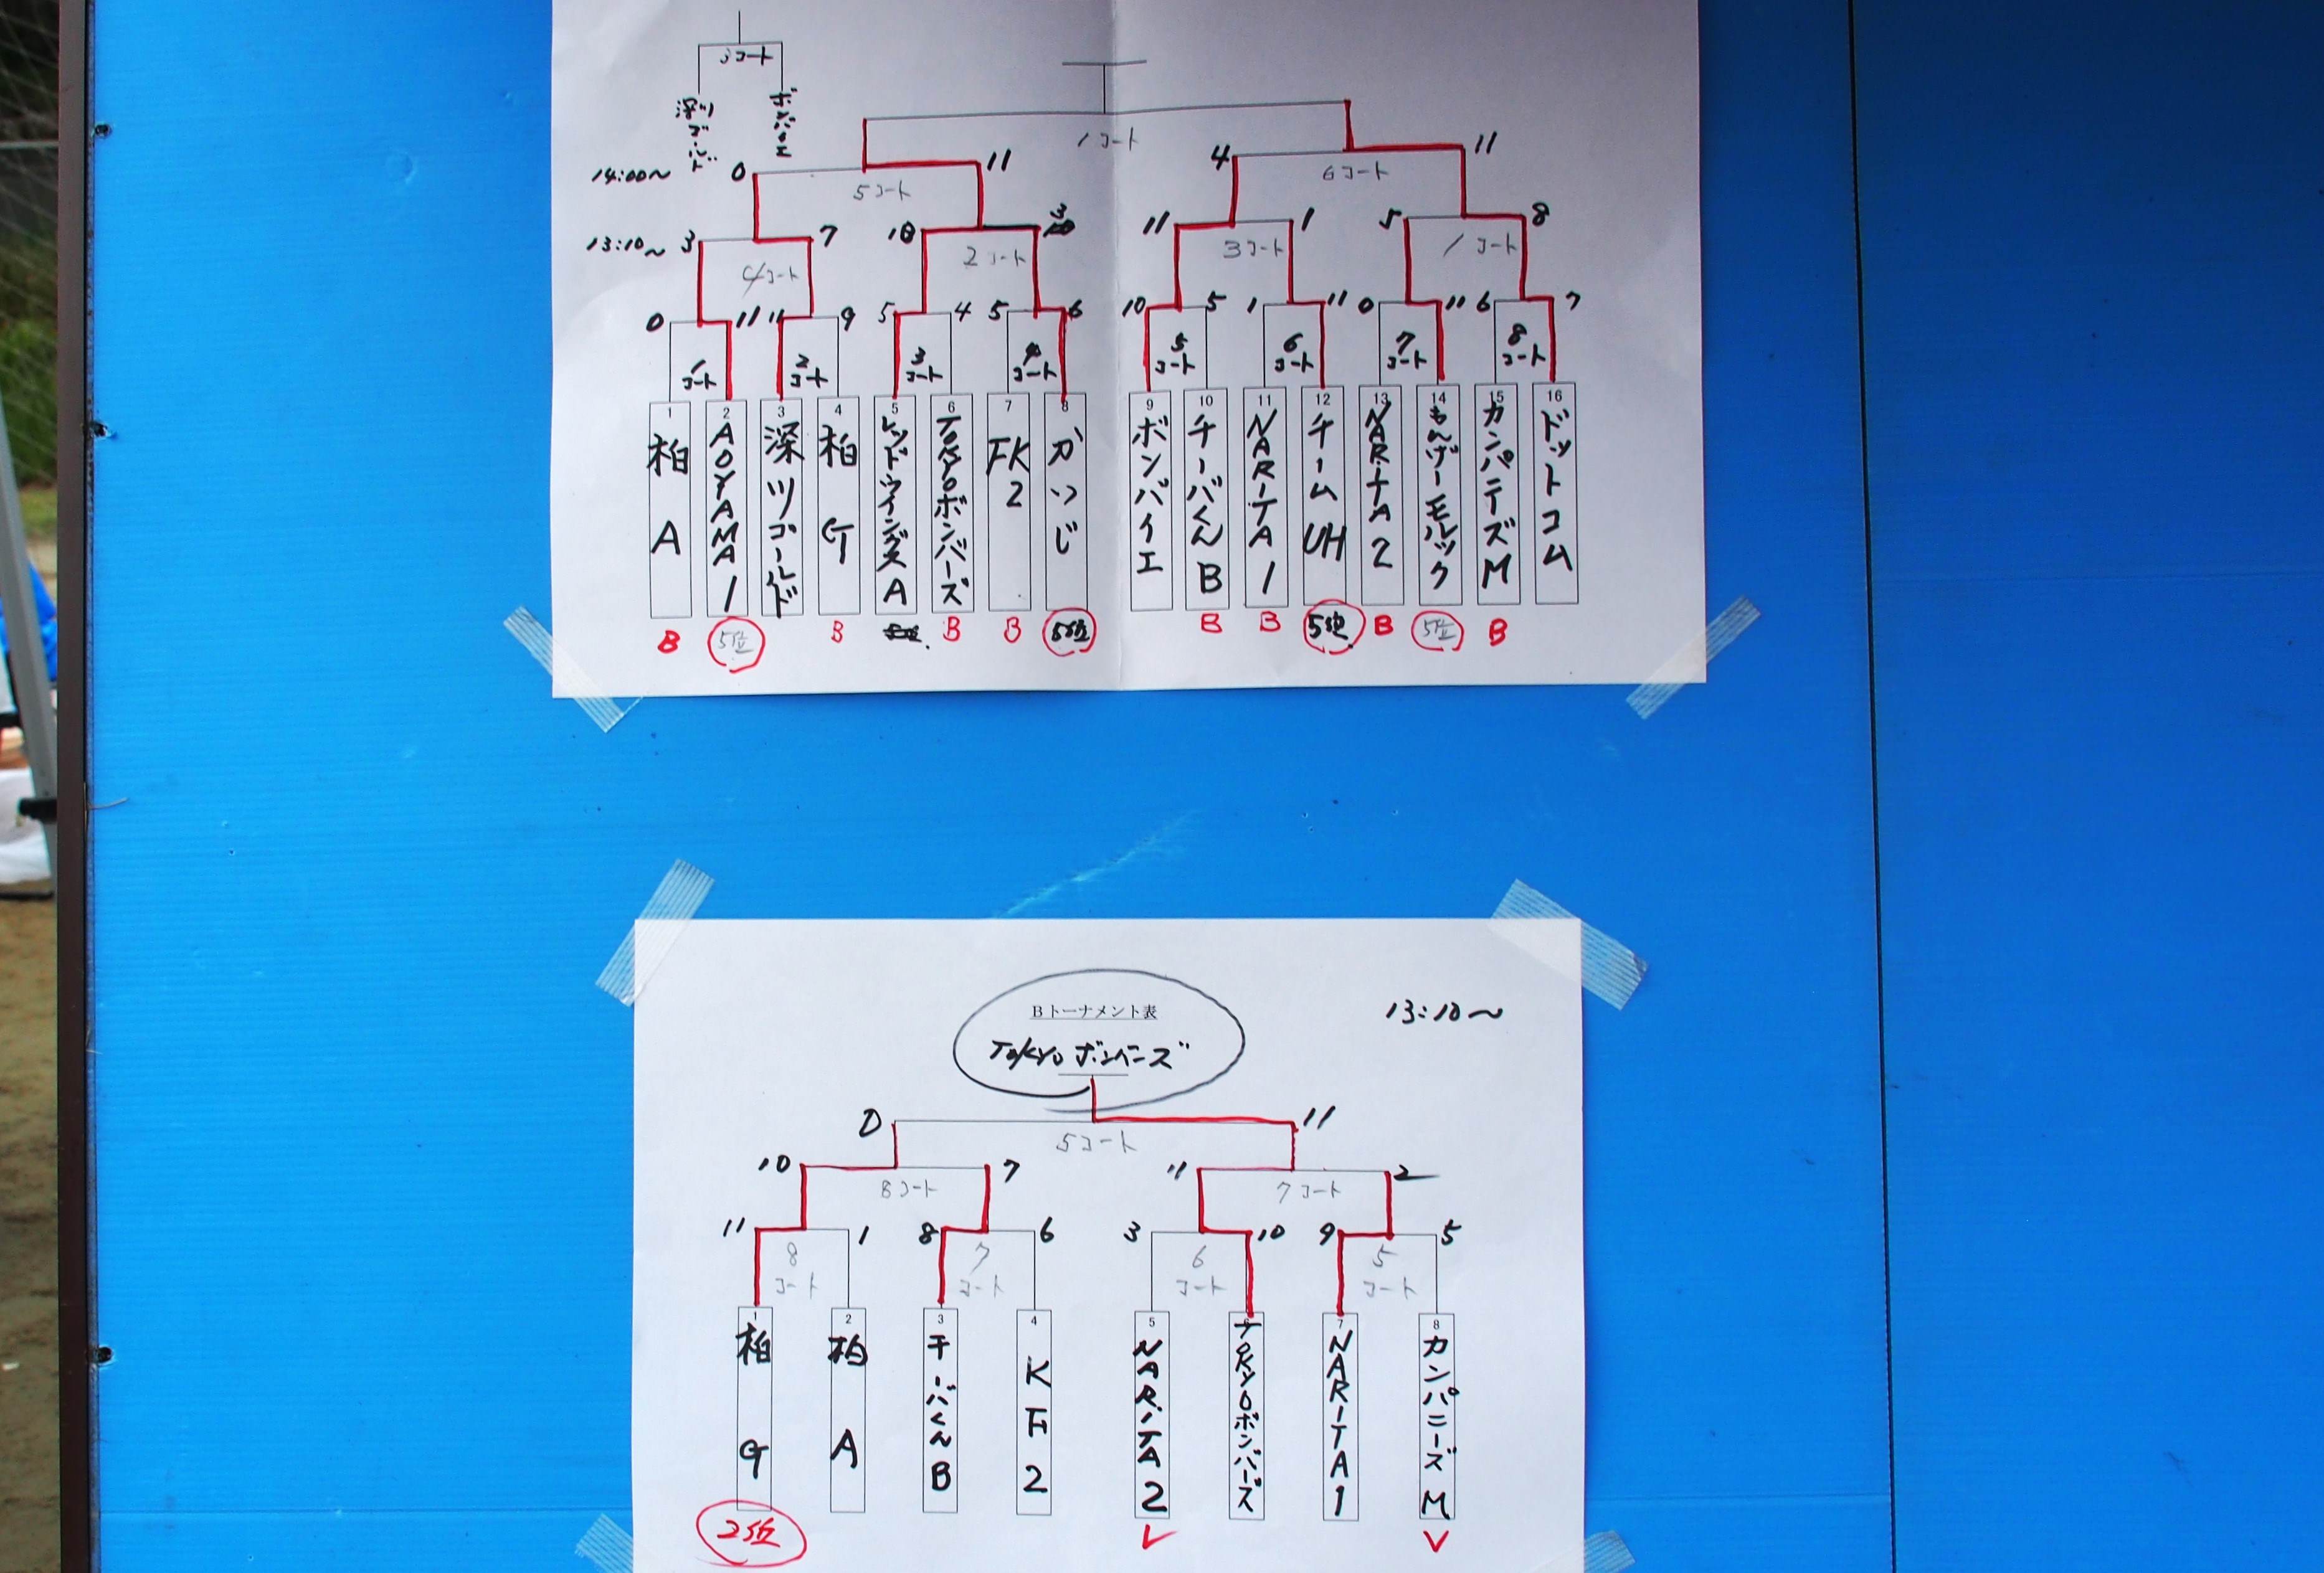 3コート
深川ゴールド
ボンバイエ
1コート
14:00〜
0
11
5コート
4
11
6コート
13:10〜
3
7
4コート
10
3
2コート
11
1
3コート
5
8
1コート
0
11
11
9
5
4
5
6
10
5
1
11
0
11
6
7
1コート
2コート
3コート
4コート
5コート
6コート
7コート
8コート
1
柏A
2
AOYAMA1
3
深川ゴールド
4
柏G
5
レッドウイングスA
6
TOKYOボンバーズ
7
FK2
8
かつじ
9
ボンバイエ
10
チーバくんB
11
NARITA1
12
チームUH
13
NARITA2
14
もんげーモルック
15
カンパニーズM
16
ドットコム
B
5位
B
B
B
5位
B
B
5位
B
5位
B
Bトーナメント表
TOKYOボンバーズ
13:10〜
0
11
5コート
10
7
8コート
11
2
7コート
11
1
8
6
3
10
9
5
8コート
7コート
6コート
5コート
1
柏G
2
柏A
3
チーバくんB
4
KF2
5
NARITA2
6
TOKYOボンバーズ
7
NARITA1
8
カンパニーズM
2位